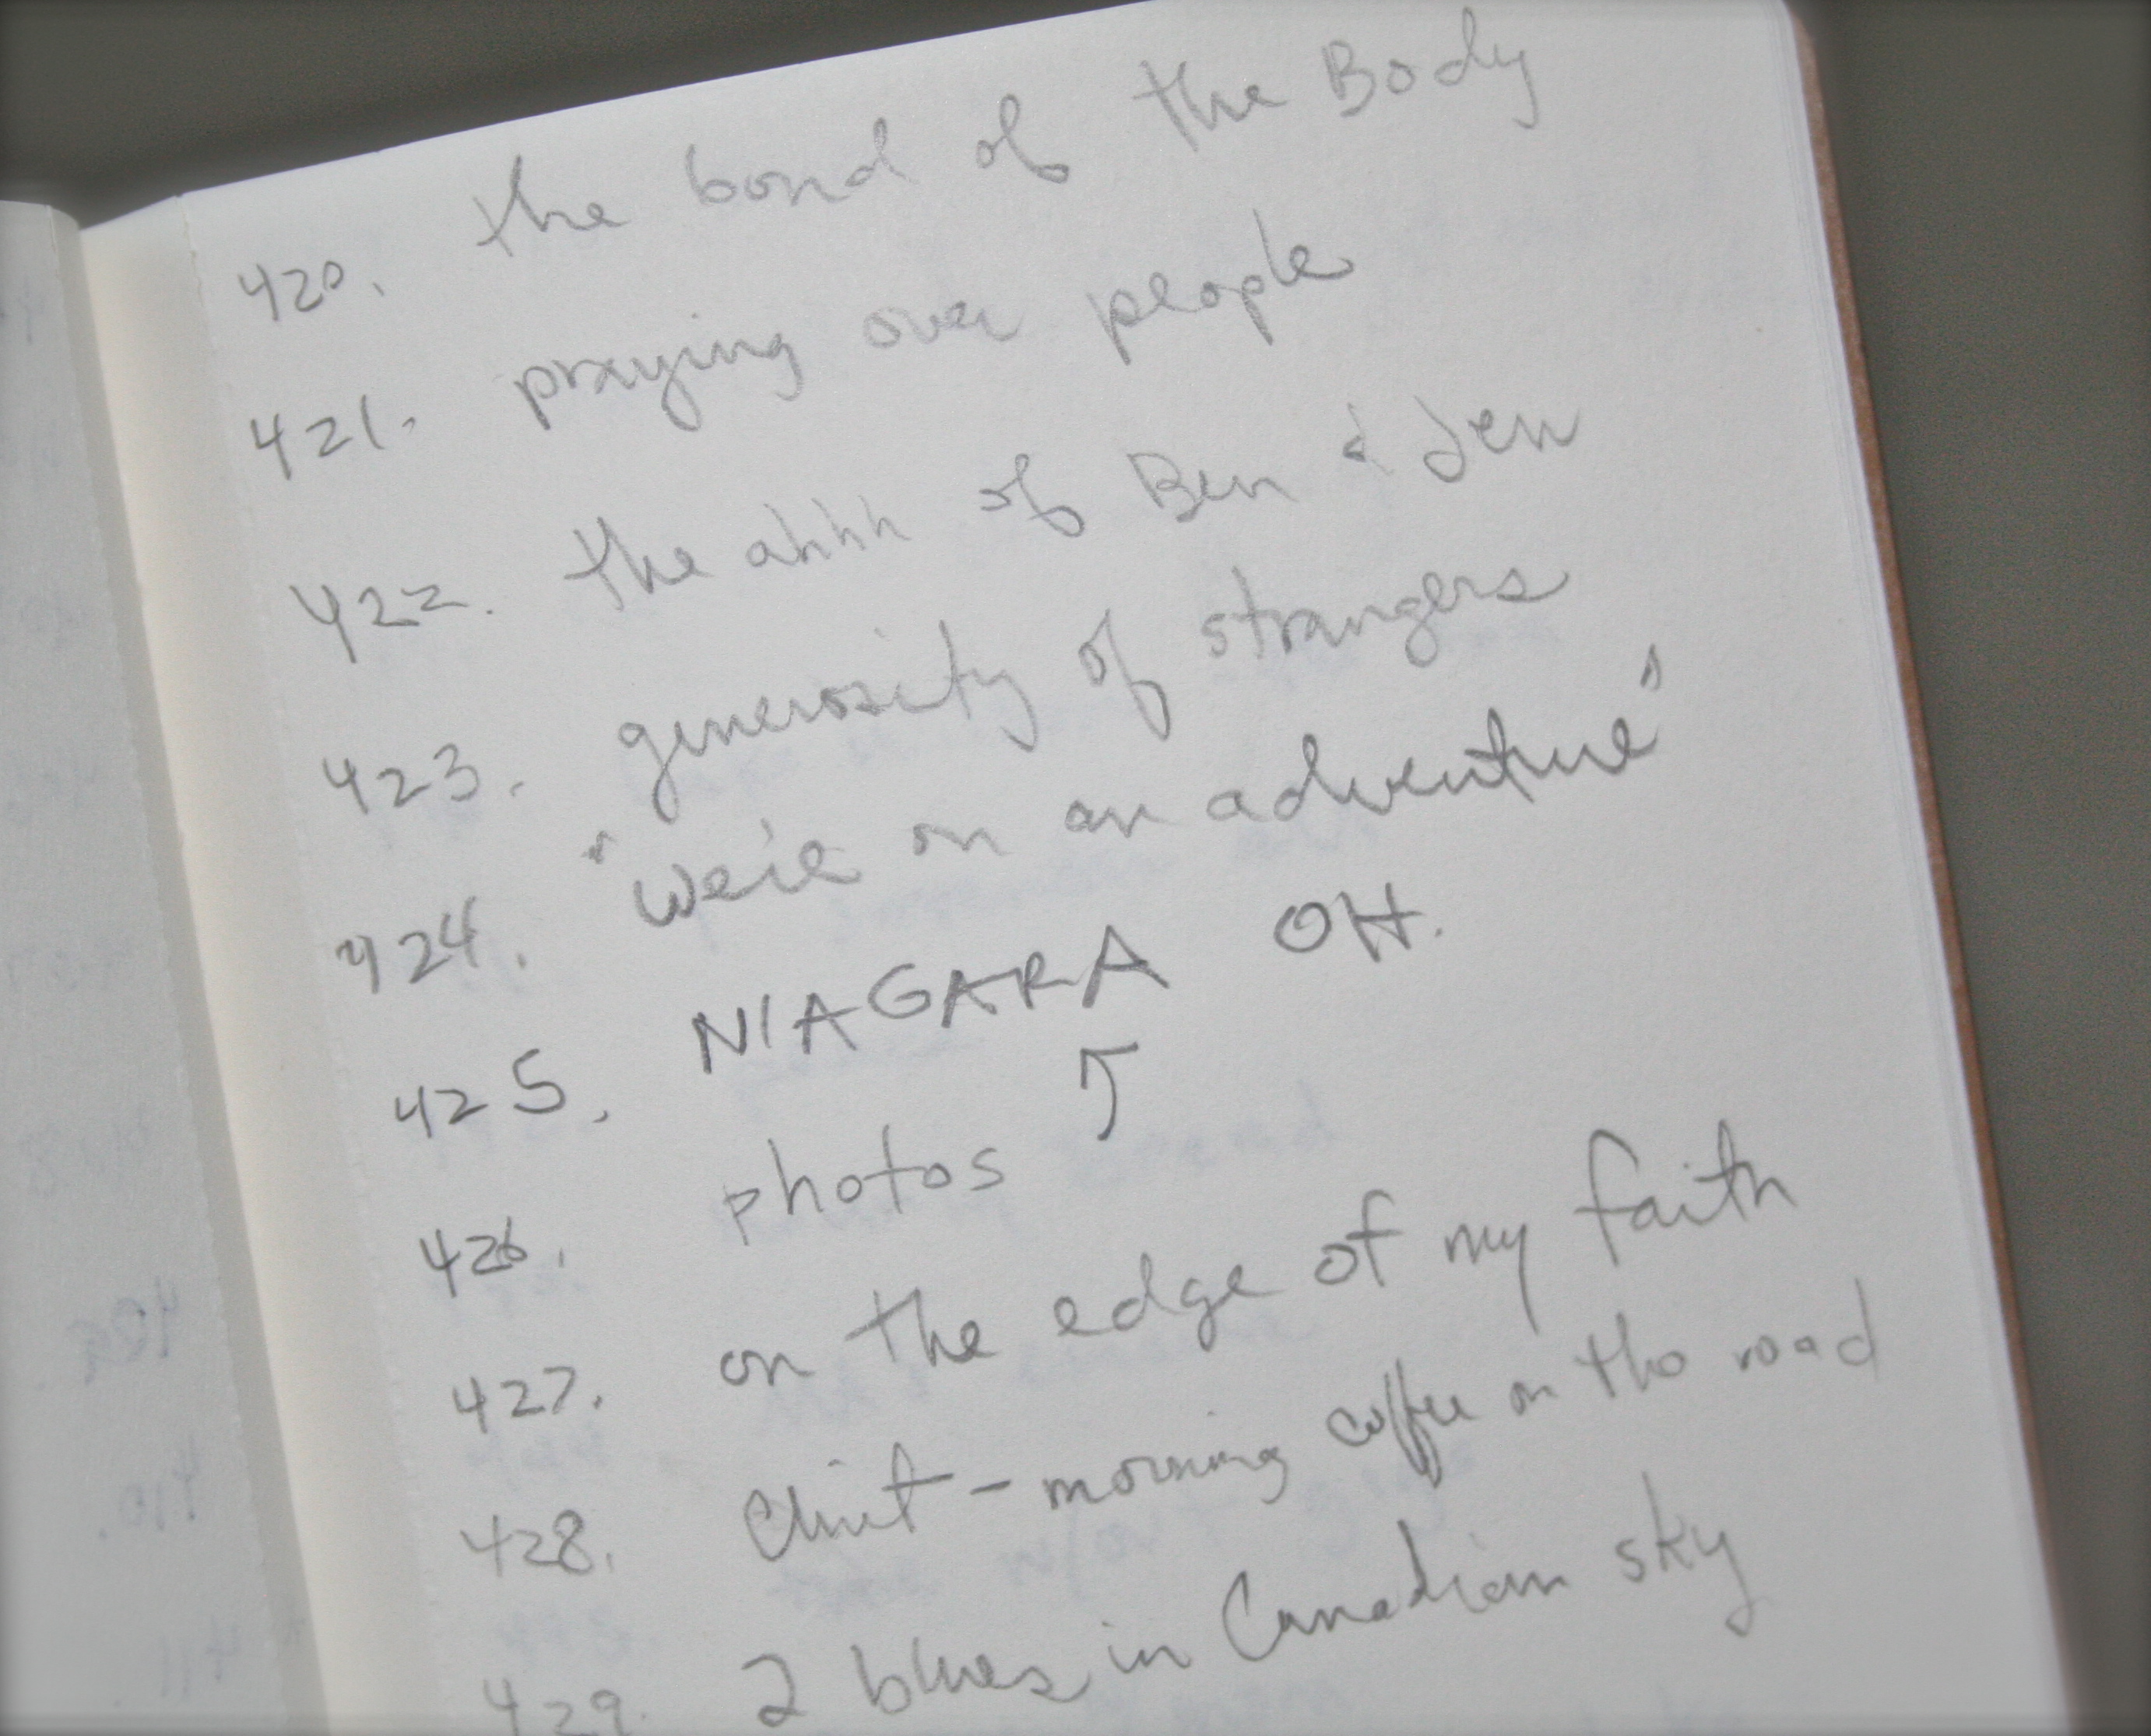 420. the bond of the Body
421. praying over people
422. the ahhh of Ben & Jen
423. generosity of strangers
424. "We're on an adventure"
425. NIAGARA OH.
426. photos ↑
427. on the edge of my faith
428. - morning coffee on the road
429. 2 blues in Canadian sky
410.
411.